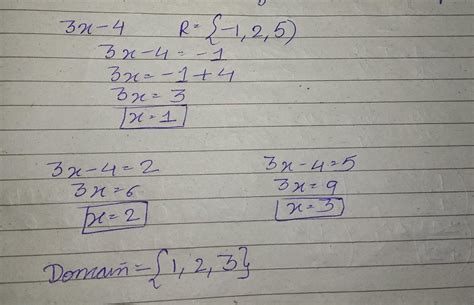 3x-4 R={-1,2,5)
3x-4=-1
3x=-1+4
3x=3
x=1
3x-4=2
3x=6
x=2
3x-4=5
3x=9
x=3
Domain={1,2,3}